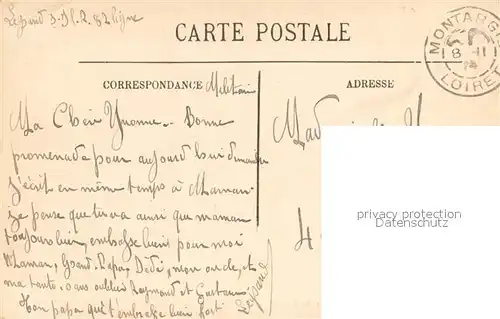 Legrand 3e Dt. R. 82 ligne
CARTE POSTALE
MONTARGIS
18 -11
14
LOIRET
CORRESPONDANCE Militaire
ADRESSE
Ma Chère Yvonne. Bonne
promenade pour aujourd'hui dimanche
j'écrit en même temps à Maman
je pense que tu va ainsi que maman
toujours bien, embrasse bien pour moi
Maman, Grand-Papa, Dédé, mon oncle, et
ma tante. sans oublier Raymond et Gaston
Ton papa qui t'embrasse bien fort
Legrand
privacy protection
Datenschutz